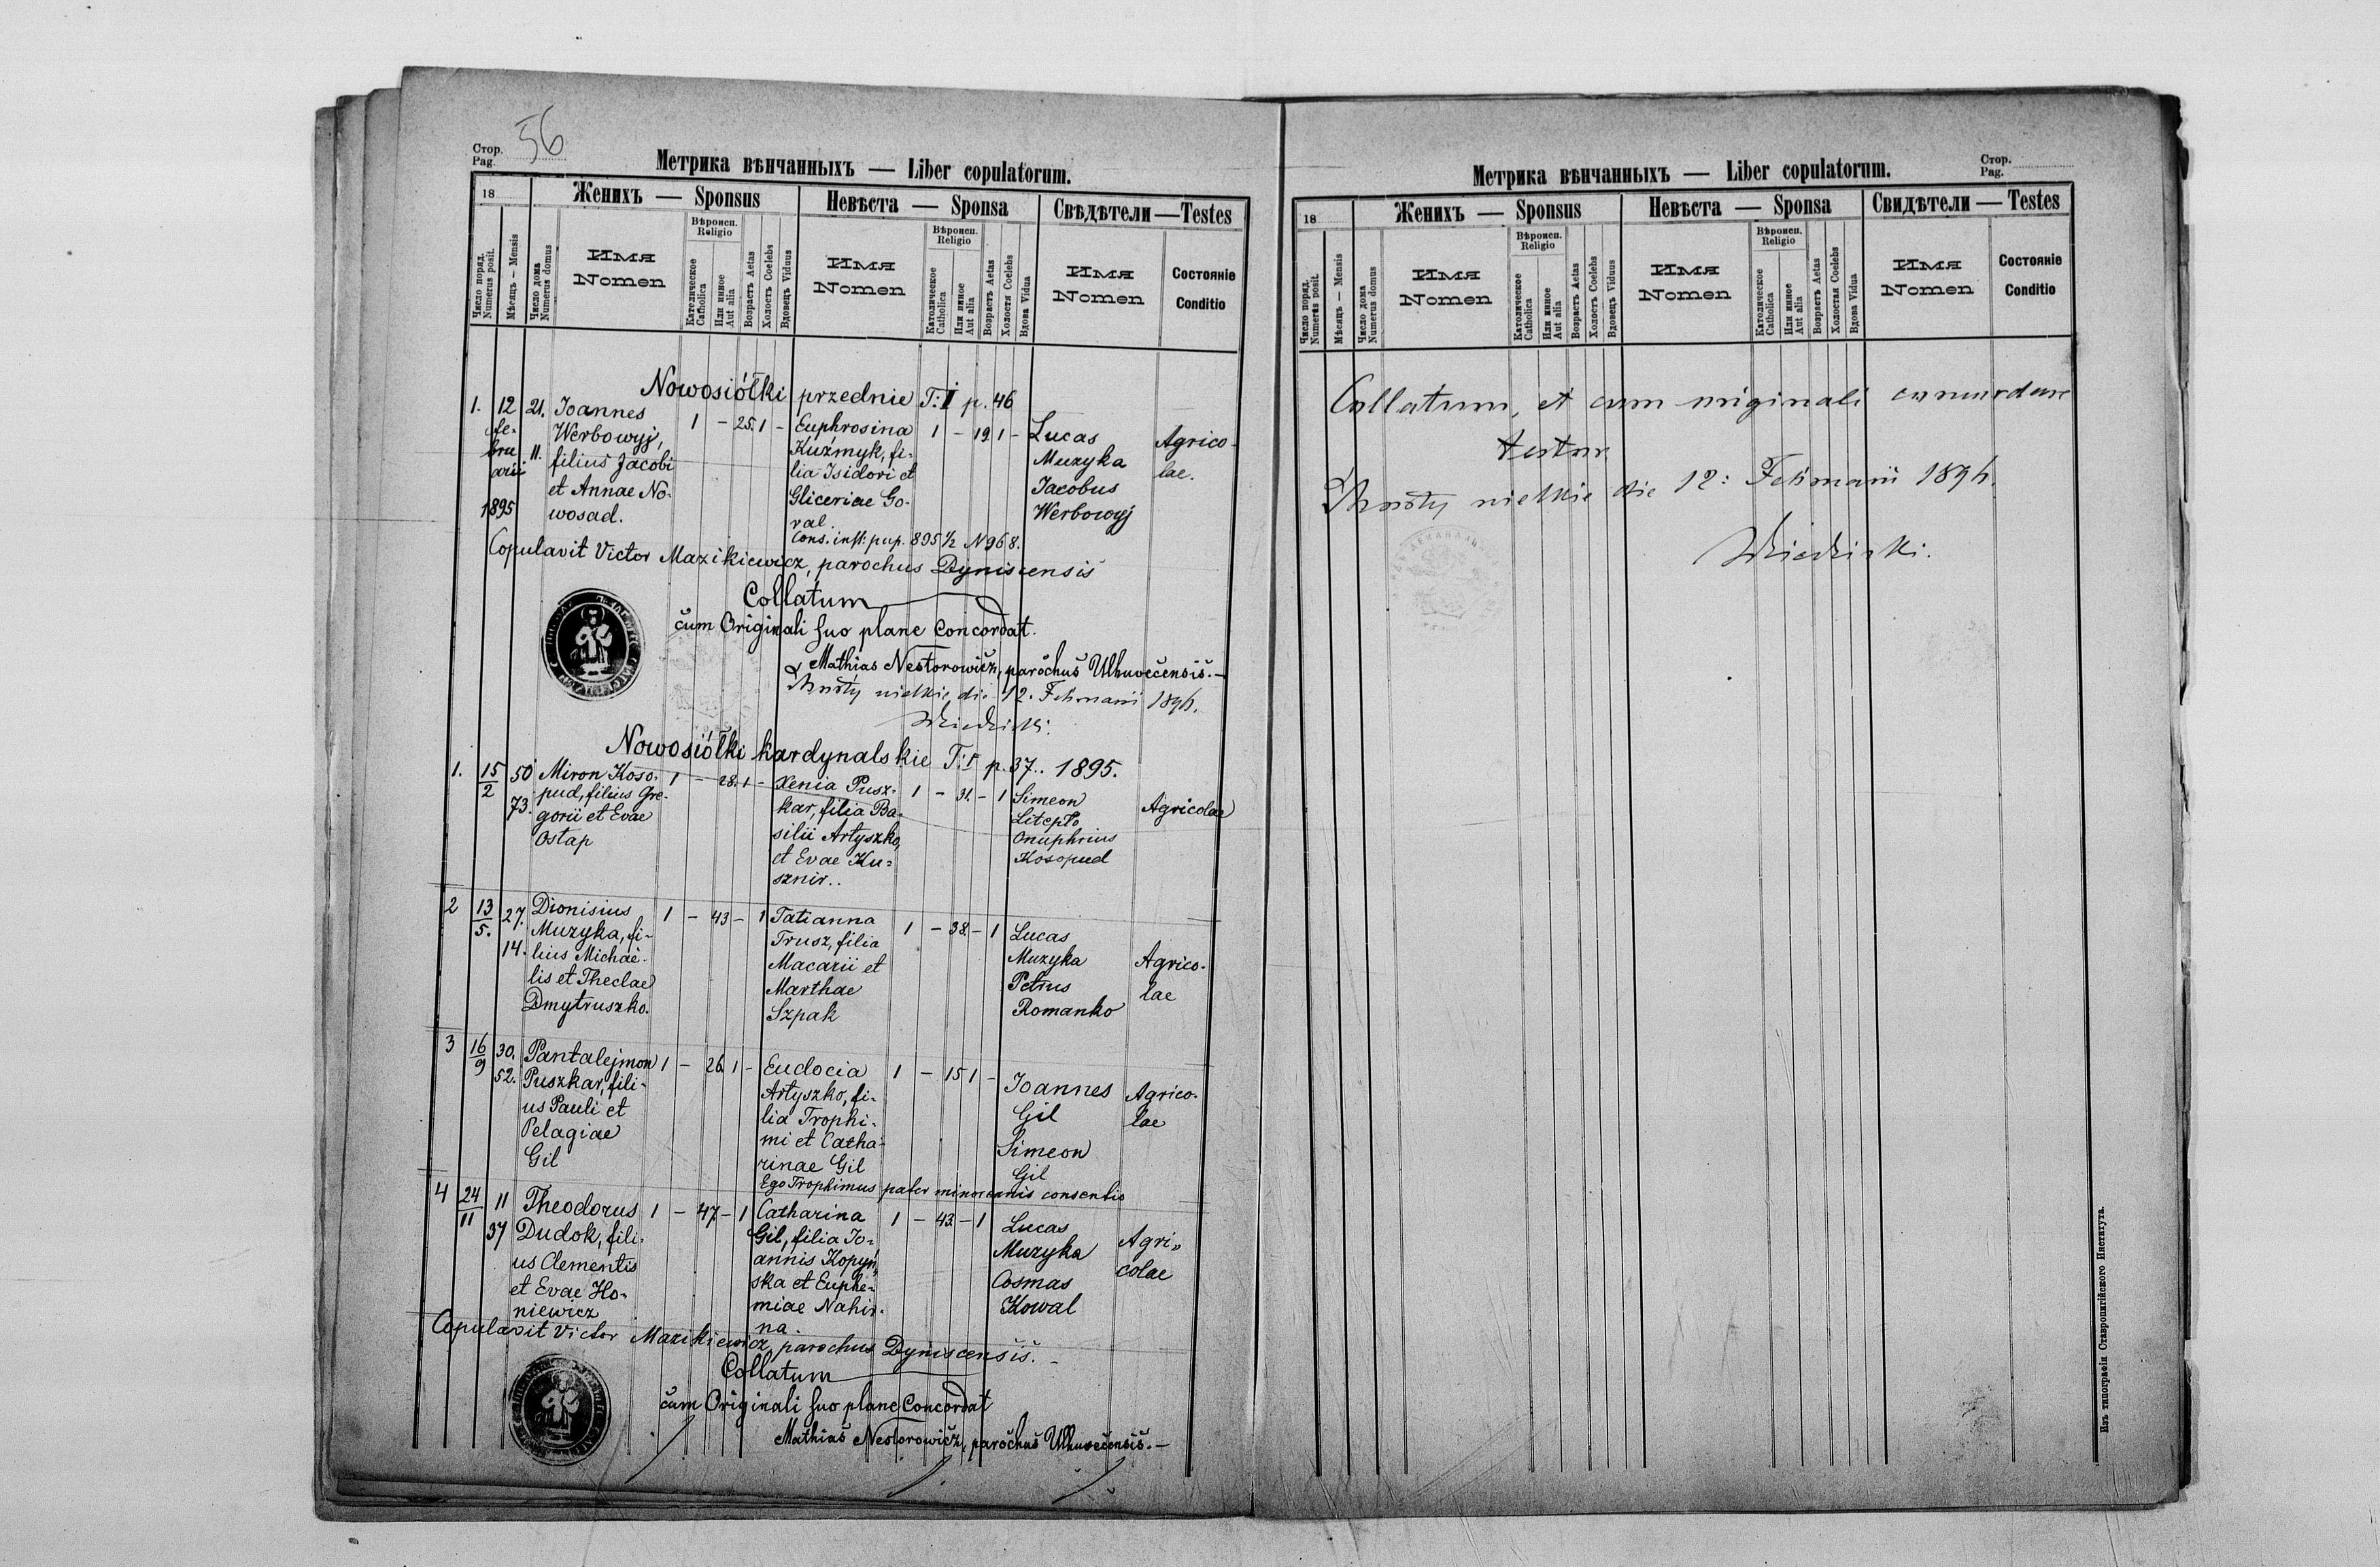 Стор.
Pag. 56
Метрика вѣнчанныхъ — Liber copulatorum.
18
Женихъ — Sponsus
Невѣста — Sponsa
Свѣдѣтели — Testes
Число поряд.
Numerus posit.
Мѣсяцъ — Mensis
Число дома
Numerus domus
Имя
Nomen
Вѣроисп.
Religio
Католическое
Catholica
Или инное
Aut alia
Возрастъ Aetas
Холостъ Coelebs
Вдовецъ Viduus
Имя
Nomen
Вѣроисп.
Religio
Католическое
Catholica
Или инное
Aut alia
Возрастъ Aetas
Холостая Coelebs
Вдова Vidua
Имя
Nomen
Состояніе
Conditio
Nowosiółki przednie T: I p. 46
1. 12 fe- bru arii 1895
21. 11.
Joannes
Werbowyj,
filius Jacobi
et Annae No-
wosad.
1 – 25. 1 –
Euphrosina
Kuźmyk, fi-
lia Isidori et
Gliceriae Go-
val.
Cons. inst: pup. 895 1/2 N 968.
1 – 19 1 –
Lucas
Muzyka
Jacobus
Werbowyj
Agrico-
lae.
Copulavit Victor Mazikiewicz, parochus Dyniscensis
Collatum
cum Originali suo plane Concordat.
Mathias Nestorowicz, parochus Ulhuvecensis.–
die 12. Februarii 1896.
Nowosiółki kardynalskie T: I p. 37.. 1895.
1. 15/2
50 73.
Miron Koso-
pud, filius Gre-
gorii et Evae
Ostap
1 – 28. 1 –
Xenia Pusz-
kar, filia Ba-
silii Artyszko,
et Evae Ku-
sznir..
1 – 31. – 1
Simeon
Litepło
Onuphrius
Kosopud
Agricolae
2 13/5.
27. 14.
Dionisius
Muzyka, fi-
lius Michae-
lis et Theclae
Dmytruszko.
1 – 43 – 1
Tatianna
Trusz, filia
Macarii et
Marthae
Szpak
1 – 38. – 1
Lucas
Muzyka
Petrus
Romanko
Agrico-
lae
3 16/9
30. 52.
Pantalejmon
Puszkar, fili-
us Pauli et
Pelagiae
Gil
1 – 26. 1 –
Eudocia
Artyszko, fi-
lia Trophi-
mi et Catha-
rinae Gil
Ego Trophimus pater minorennis consentio
1 – 15 1 –
Joannes
Gil
Simeon
Gil
Agrico-
lae
4 24/11
11 37
Theodorus
Dudok, fili-
us Clementis
et Evae Ho-
niewicz
1 – 47 – 1
Catharina
Gil, filia Jo-
annis Kopyń-
ska et Euphe-
miae Nahir-
na.
1 – 43. – 1
Lucas
Muzyka
Cosmas
Kowal
Agri-
colae
Copulavit Victor Mazikiewicz, parochus Dyniscensis. –
Collatum
cum Originali suo plane Concordat
Mathias Nestorowicz, parochus Ulhuvecensis. –
Стор.
Pag.
Метрика вѣнчанныхъ — Liber copulatorum.
18
Женихъ — Sponsus
Невѣста — Sponsa
Свидѣтели — Testes
Число поряд.
Numerus posit.
Мѣсяцъ — Mensis
Число дома
Numerus domus
Имя
Nomen
Вѣроисп.
Religio
Католическое
Catholica
Или инное
Aut alia
Возрастъ Aetas
Холостъ Coelebs
Вдовецъ Viduus
Имя
Nomen
Вѣроисп.
Religio
Католическое
Catholica
Или инное
Aut alia
Возрастъ Aetas
Холостая Coelebs
Вдова Vidua
Имя
Nomen
Состояніе
Conditio
Collatum, et cum originali concordare
testor
die 12: Februarii 1896.
Изъ типографіи Ставропигійского Института.